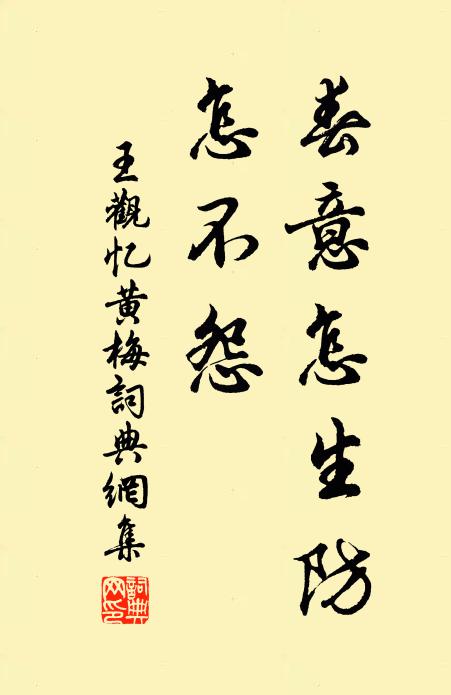 春意怎生防
怎不怨
王觀忆黄梅詞典網集
詞典網印